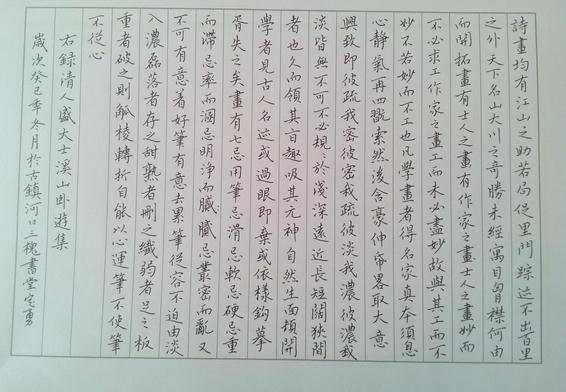 詩畫均有江山之助若局促里門踪迹不出百里
之外天下名山大川之奇勝未經寓目胸襟何由
而開拓畫有士人之畫有作家之畫士人之畫妙而
不必求工作家之畫工而未必盡妙故與其工而不
妙不若妙而不工也凡學畫者得名家真本須息
心靜氣再四玩索然後含豪伸帋畧取大意
興致即彼疏我密彼密我疏彼淡我濃彼濃我
淡皆無不可不必規規於淺深遠近長短闊狹間
者也久而領其旨趣吸其元神自然生面頓開
學者見古人名迹或過眼即棄或依樣鈎摹
胥失之矣畫有七忌用筆忌滑忌軟忌硬忌重
而滯忌率而溷忌明淨而膩忌叢密而亂又
不可有意着好筆有意去累筆從容不迫由淡
入濃磊落者存之甜熟者刪之纖弱者足之板
重者破之則觚棱轉折自能以心運筆不使筆
不從心
右録清人盛大士溪山卧遊集
歲次癸巳年冬月於古鎮河口三槐書堂宅勇